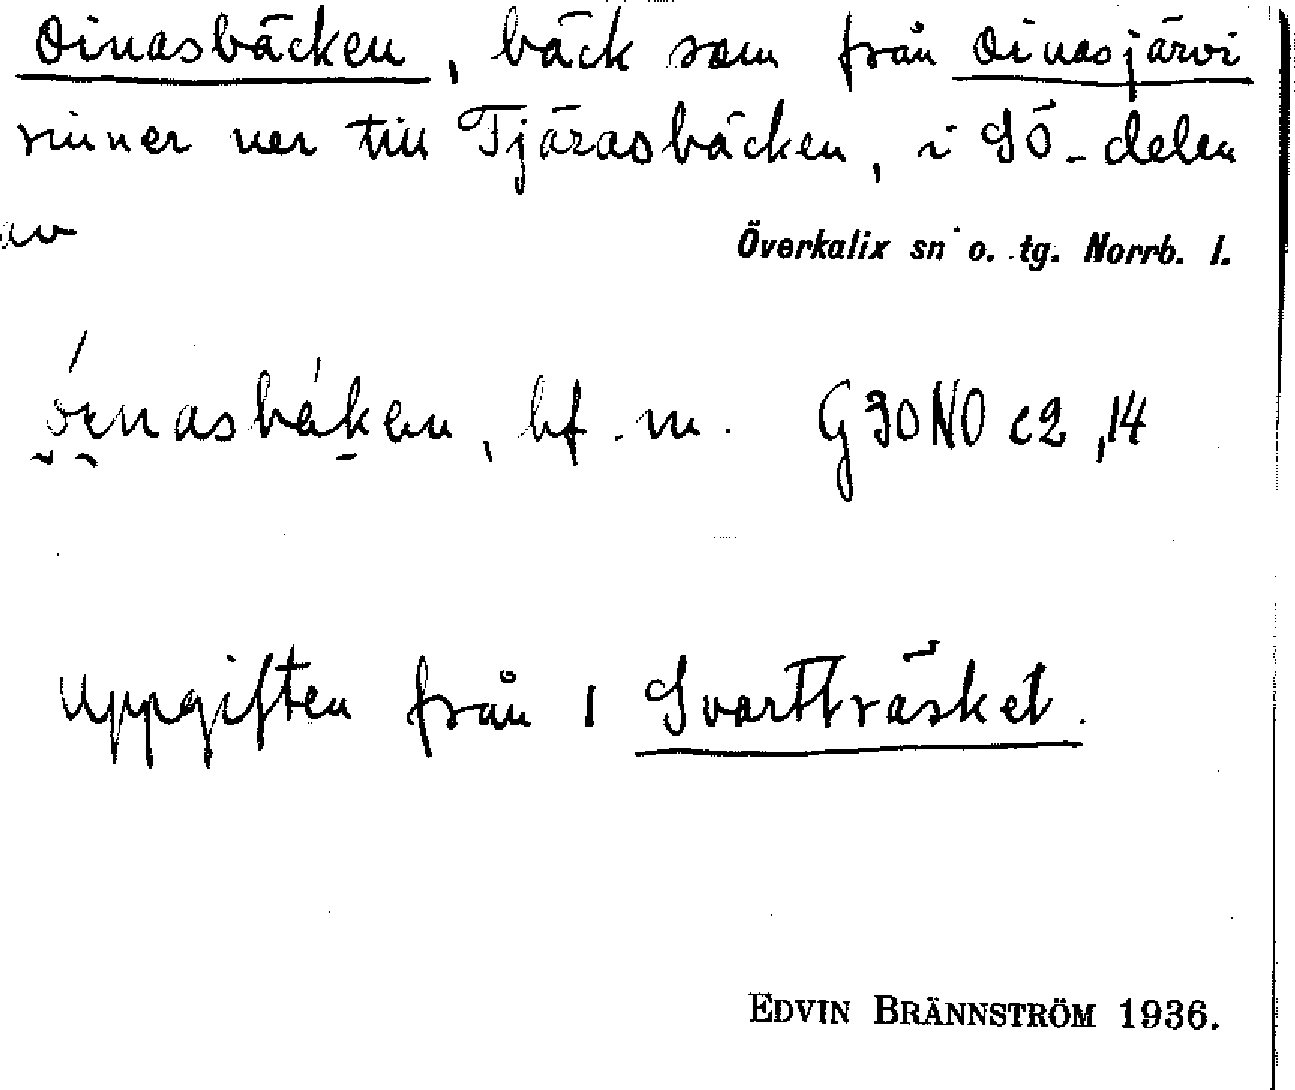 Oinasbäcken, bäck som från Oinasjärvi
rinner ner till Tjärasbäcken, i SÖ-delen
av Överkalix sn o. tg. Norrb. l.
bf. m. G30NO c2,14
Uppgiften från 1 Svartträsket.
EDVIN BRÄNNSTRÖM 1936.